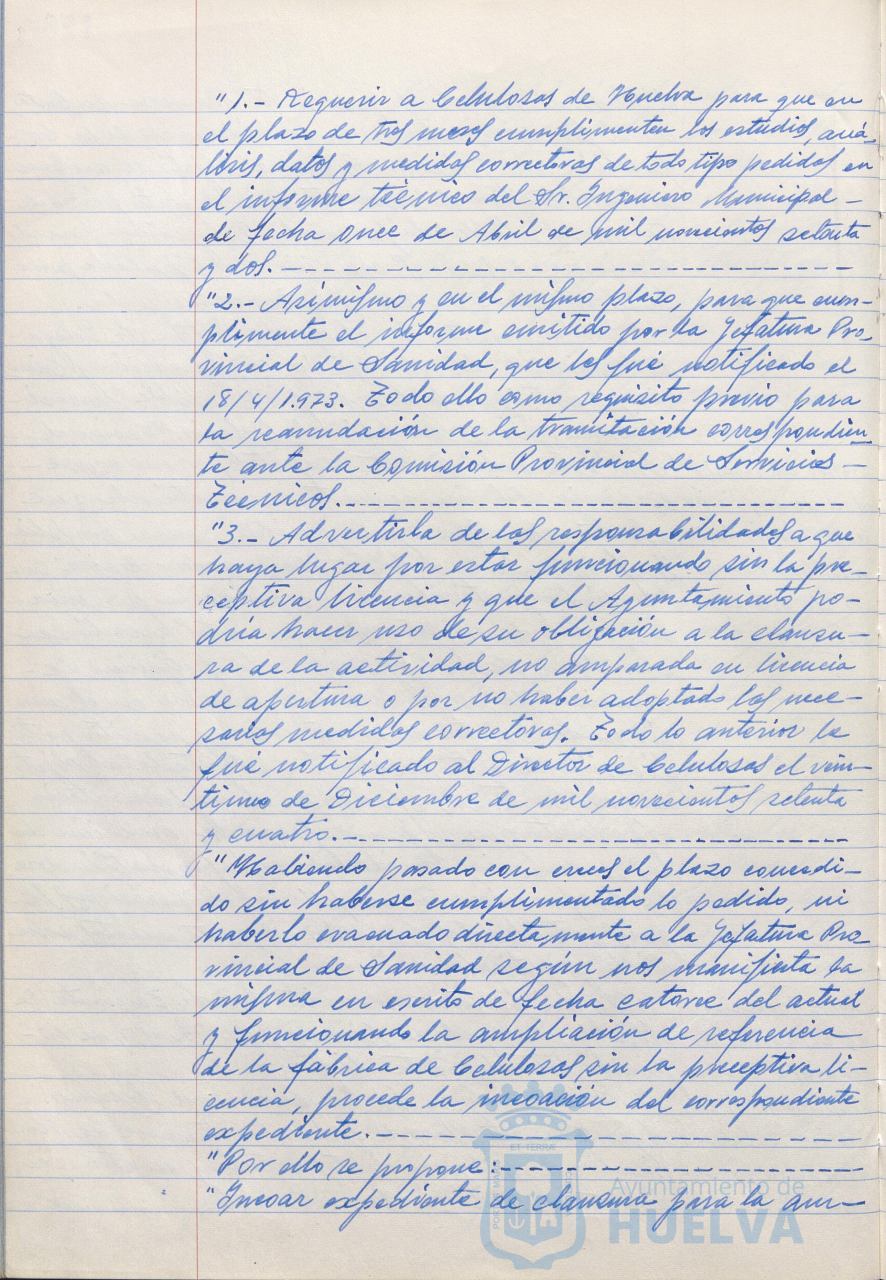 "1.- Requerir a Celulosas de Huelva para que en
el plazo de tres meses cumplimenten los estudios, aná-
lisis, datos y medidas correctoras de todo tipo pedidas en
el informe técnico del Sr. Ingeniero Municipal -
de fecha once de Abril de mil novecientos setenta
y dos.-----------------------------
"2.- Asimismo y en el mismo plazo, para que cum-
plimente el informe emitido por la Jefatura Pro-
vincial de Sanidad, que les fué notificado el
18/4/1.973. Todo ello como requisito previo para
la reanudación de la tramitación correspondien-
te ante la Comisión Provincial de Servicios -
Técnicos.-----------------------------
"3.- Advertirla de las responsabilidades a que
haya lugar por estar funcionando sin la pre-
ceptiva licencia y que el Ayuntamiento po-
dría hacer uso de su obligación a la clausu-
ra de la actividad, no amparada en licencia
de apertura o por no haber adoptado las nece-
sarias medidas correctoras. Todo lo anterior le
fué notificado al Director de Celulosas el vein-
tiuno de Diciembre de mil novecientos setenta
y cuatro.-----------------------------
"Habiendo pasado con creces el plazo concedi-
do sin haberse cumplimentado lo pedido, ni
haberlo evacuado directamente a la Jefatura Pro-
vincial de Sanidad según nos manifiesta la
misma en escrito de fecha catorce del actual
y funcionando la ampliación de referencia
de la fábrica de Celulosas sin la preceptiva li-
cencia, procede la incoación del correspondiente
expediente.-----------------------------
"Por ello se propone:--------------------
"Incoar expediente de clausura para la am-
ET TERRA
PORTUS MARIS
Ayuntamiento de
HUELVA